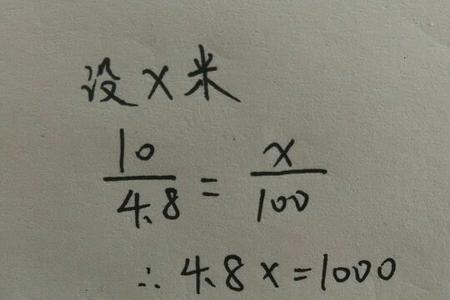 设x米
10/4.8 = x/100
∴ 4.8x=1000